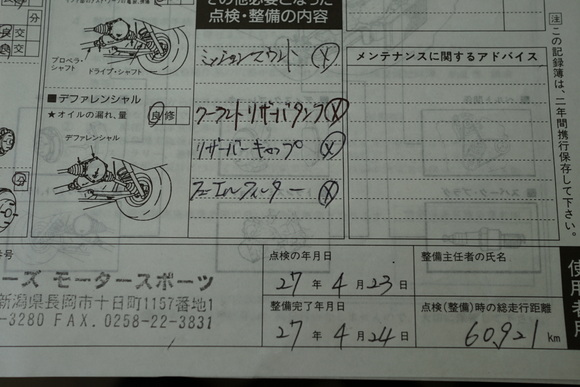 その他必要となった
点検・整備の内容
分
良 交
良 交
プロペラ・
シャフト
ドライブ・シャフト
ミッションマウント ⓧ
メンテナンスに関するアドバイス
■デファレンシャル
★オイルの漏れ、量
良 修
デファレンシャル
クーラントリザーバタンク ⓧ
リザーバーキャップ ⓧ
フューエルフィルター ⓧ
注
この記録簿は、二年間携行保存して下さい。
番号
ーズ モータースポーツ
新潟県長岡市十日町1157番地1
-3280 FAX. 0258-22-3831
点検の年月日
27年 4月 23日
整備主任者の氏名
整備完了年月日
27年 4月 24日
点検(整備)時の総走行距離
60921 km
使用者用